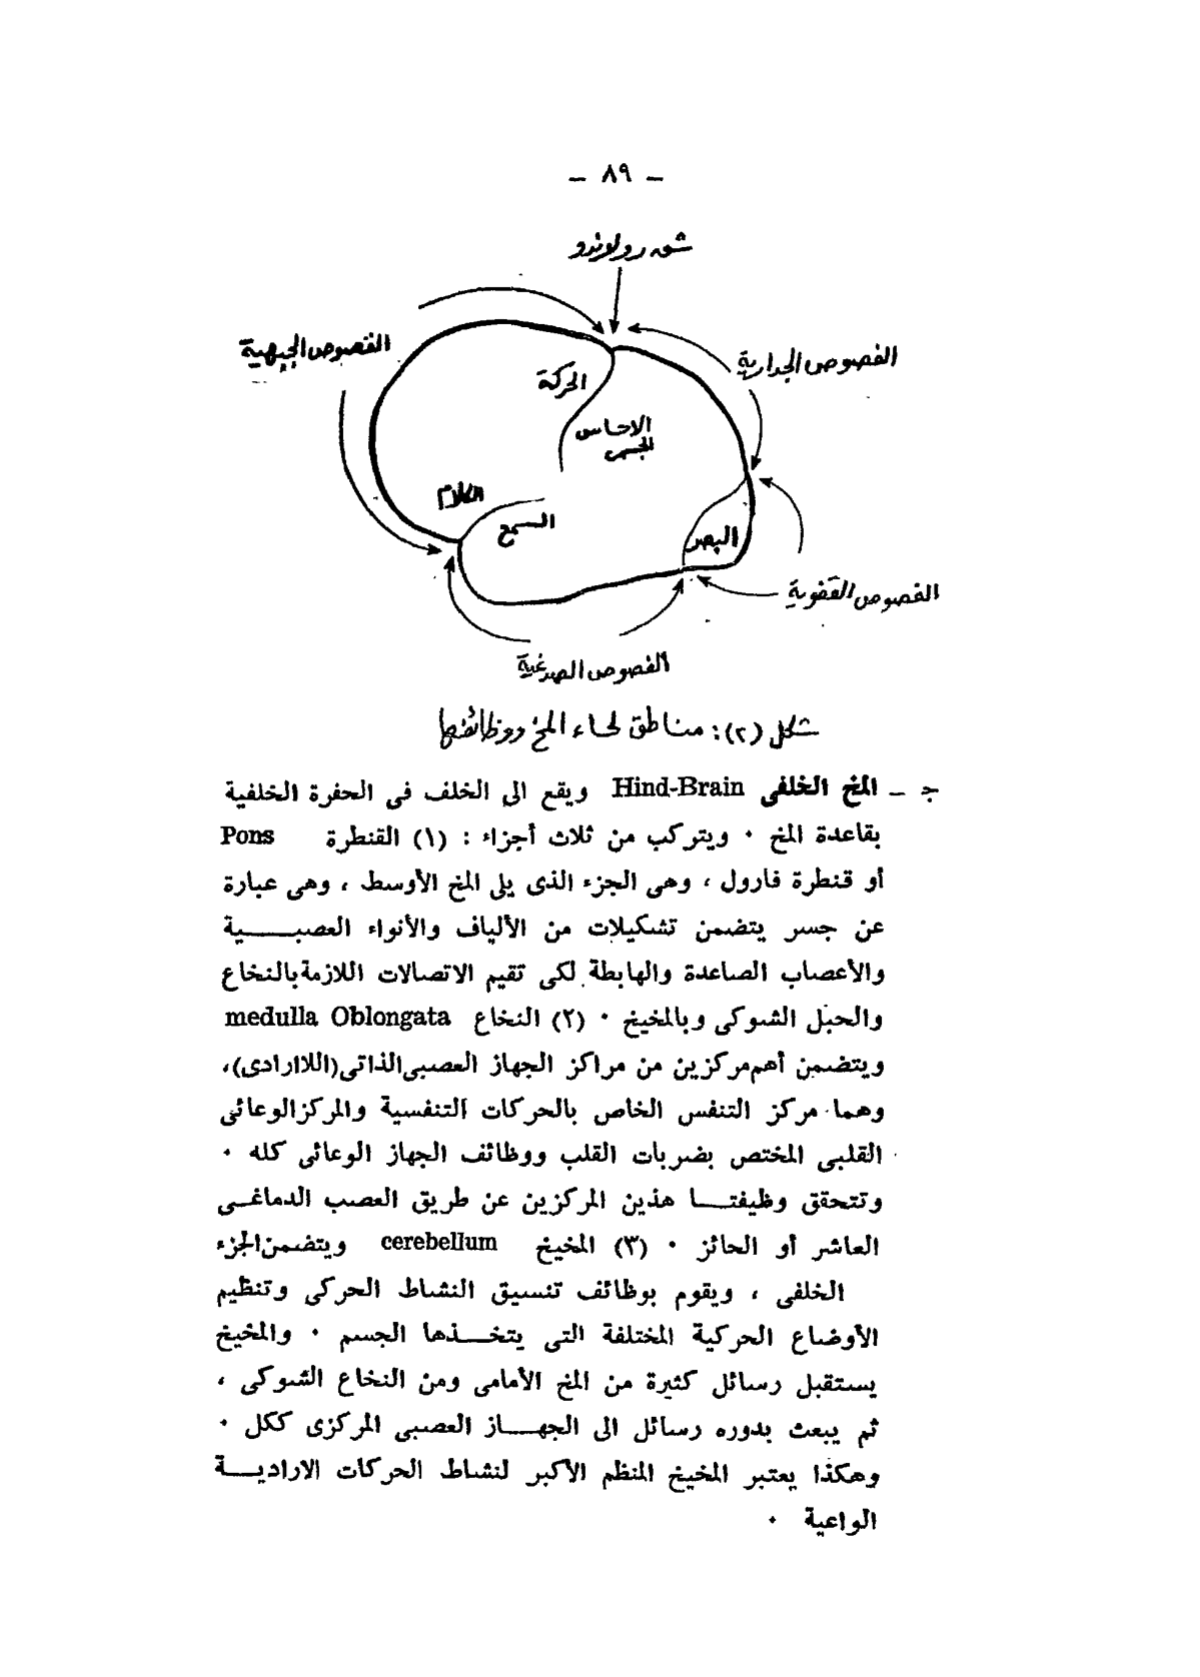 – ٨٩ –
شق رولاندو
الفصوص الجبهية
الفصوص الجدارية
الحركة
الاحساس
الجسمى
الكلام
السمع
البصر
الفصوص القفوية
الفصوص الصدغية
شكل (٢): مناطق لحاء المخ ووظائفها
جـ – المخ الخلفى Hind-Brain ويقع الى الخلف فى الحفرة الخلفية
بقاعدة المخ ٠ ويتركب من ثلاث أجزاء : (١) القنطرة Pons
أو قنطرة فارول ، وهى الجزء الذى يلى المخ الأوسط ، وهى عبارة
عن جسر يتضمن تشكيلات من الألياف والأنواء العصبـــــية
والأعصاب الصاعدة والهابطة لكى تقيم الاتصالات اللازمة بالنخاع
والحبل الشوكى وبالمخيخ ٠ (٢) النخاع medulla Oblongata
ويتضمن أهم مركزين من مراكز الجهاز العصبى الذاتى (اللاارادى)،
وهما مركز التنفس الخاص بالحركات التنفسية والمركز الوعائى
القلبى المختص بضربات القلب ووظائف الجهاز الوعائى كله ٠
وتتحقق وظيفتـــا هذين المركزين عن طريق العصب الدماغــى
العاشر أو الحائز ٠ (٣) المخيخ cerebellum ويتضمن الجزء
الخلفى ، ويقوم بوظائف تنسيق النشاط الحركى وتنظيم
الأوضاع الحركية المختلفة التى يتخـــذها الجسم ٠ والمخيخ
يستقبل رسائل كثيرة من المخ الأمامى ومن النخاع الشوكى ،
ثم يبعث بدوره رسائل الى الجهـــاز العصبى المركزى ككل ٠
وهكذا يعتبر المخيخ المنظم الأكبر لنشاط الحركات الاراديـــة
الواعية ٠